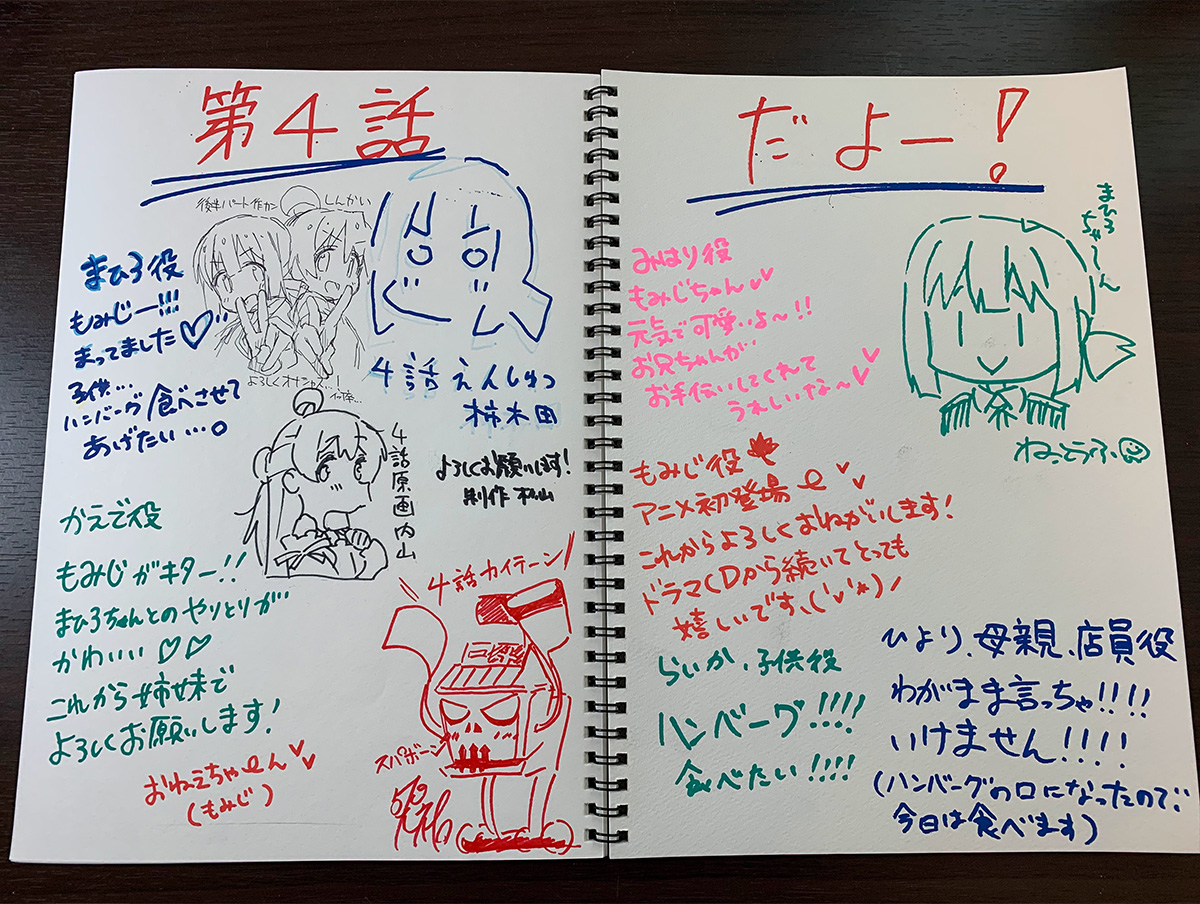 第4話
だよー!
後半パート作カン
しんかい
まひろ役
もみじー!!!
まってました♡
子供…
ハンバーグ食べさせて
あげたい…。
4話えんしゅつ
柿木田
よろしくお願いします!
制作 松山
4話原画内山
かえで役
もみじがキター!!
まひろちゃんとのやりとりが
かわいい♡♡
これから姉妹で
よろしくお願いします!
おねえちゃーん♥
(もみじ)
4話カイテーン
スパボーン
みはり役
もみじちゃん♥
元気で可愛いよ〜!!
お兄ちゃんが…
お手伝いしてくれて
うれしいな〜♥
まひろ
ちゃーん
ねっとうふ
もみじ役
アニメ初登場
これからよろしくおねがいします!
ドラマCDから続いてとっても
嬉しいです、('v'*)ノ
らいか、子供役
ハンバーグ!!!!
食べたい!!!!
ひより、母親、店員役
わがまま言っちゃ!!!!
いけません!!!!
(ハンバーグの口になったので
今日は食べます)